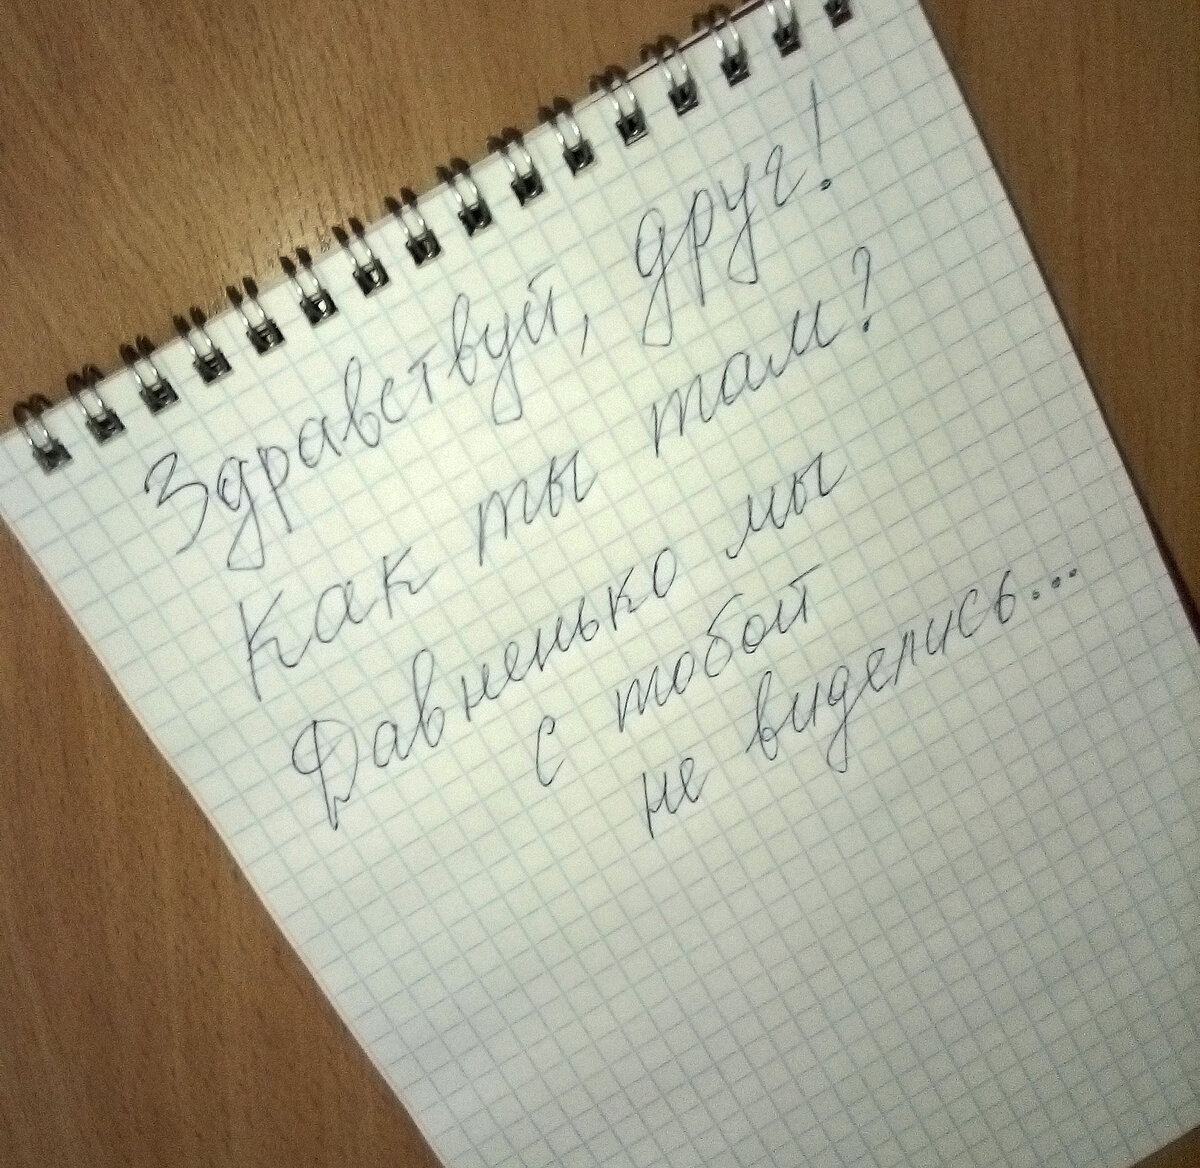 Здравствуй, друг!
Как ты там?
Давненько мы
с тобой
не виделись...